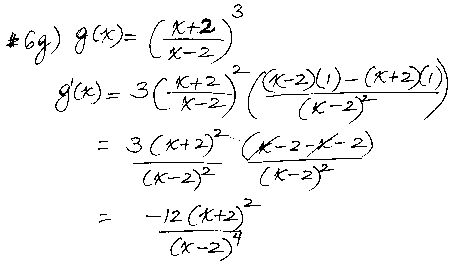 *6g) g(x) = ((x+2)/(x-2))^3
g'(x) = 3((x+2)/(x-2))^2 (((x-2)(1) - (x+2)(1))/(x-2)^2)
= 3(x+2)^2/(x-2)^2 (x-2-x-2)/(x-2)^2
= -12(x+2)^2/(x-2)^4